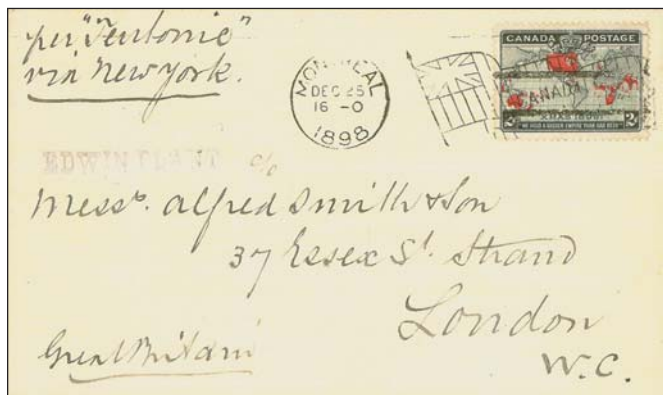 per "Teutonic"
via New York.
MONTREAL
DEC 25
16-0
1898
CANADA
CANADA POSTAGE
XMAS 1898
2 2
WE HOLD A VASTER EMPIRE THAN HAS BEEN
EDWIN PLANT c/o
Messrs. Alfred Smith & Son
37 Essex St. Strand
London
W.C.
Great Britain